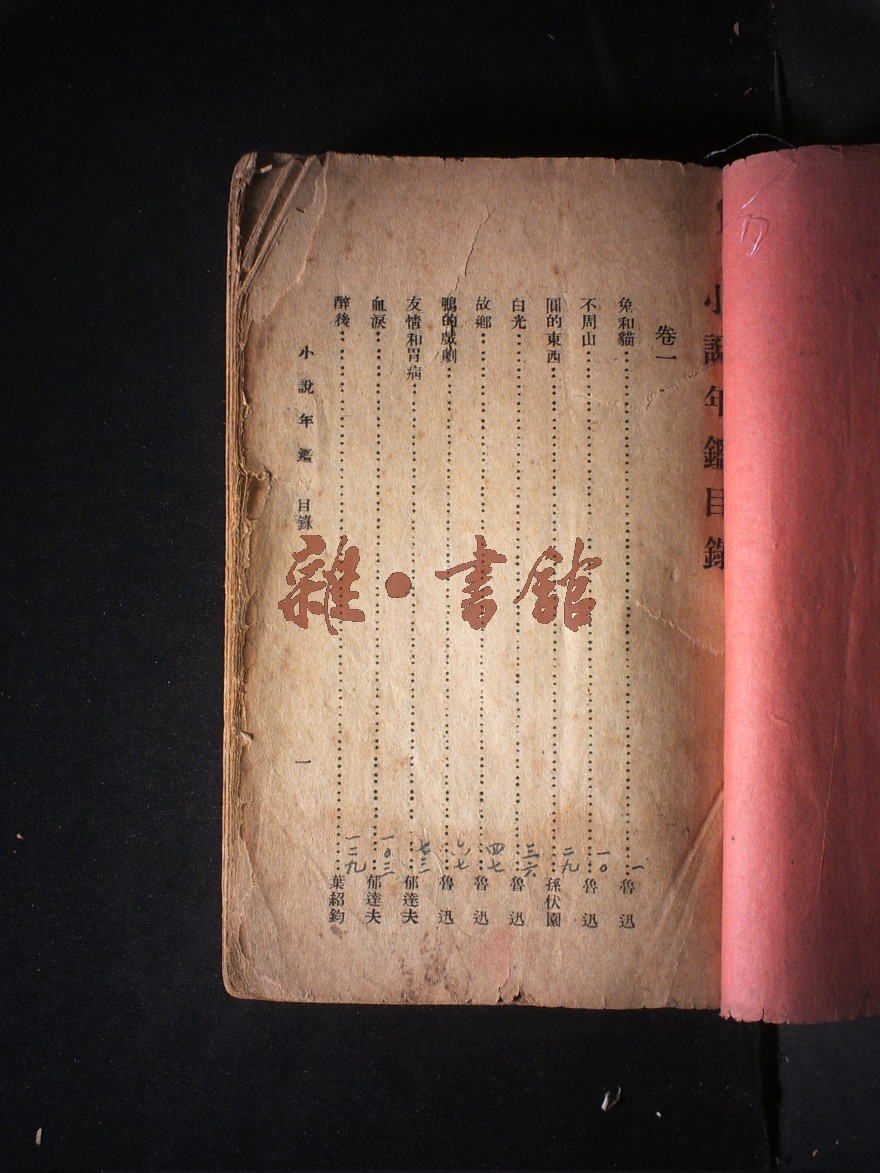 小說年鑑目錄
卷一
兔和貓 一 魯迅
不周山 一〇 魯迅
圓的東西 二九 孫伏園
白光 三六 魯迅
故鄉 四七 魯迅
鴨的戲劇 六七 魯迅
友情和胃病 七三 郁達夫
血淚 一〇三 郁達夫
醉後 一二九 葉紹鈞
小說年鑑 目錄
一
雜·書館